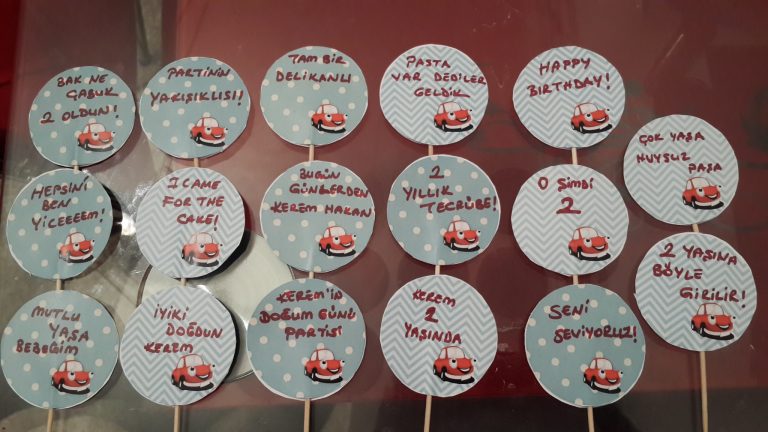 BAK NE
ÇABUK
2 OLDUN!
PARTİNİN
YAKIŞIKLISI!
TAM BİR
DELİKANLI
PASTA
VAR DEDİLER
GELDİK
HAPPY
BIRTHDAY!
ÇOK YAŞA
HUYSUZ
PAŞA
HEPSİNİ
BEN
YİCEEEEM!
I CAME
FOR THE
CAKE!
BUGÜN
GÜNLERDEN
KEREM HAKAN
2
YILLIK
TECRÜBE!
O ŞİMDİ
2
2 YAŞINA
BÖYLE
GİRİLİR!
MUTLU
YAŞA
BEBEĞİM
İYİKİ
DOĞDUN
KEREM
KEREM'İN
DOĞUM GÜNÜ
PARTİSİ
KEREM
2
YAŞINDA
SENİ
SEVİYORUZ!